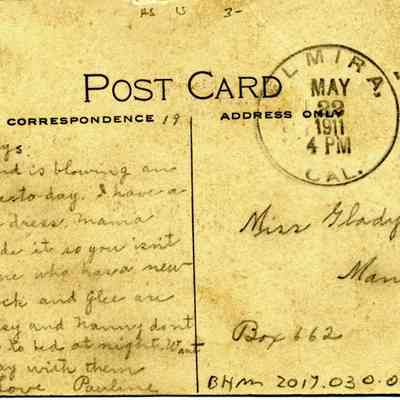 AS IS 3-
POST CARD
CORRESPONDENCE 19
ADDRESS ONLY
ELMIRA,
MAY
22
1911
4 PM
CAL.
ys:
nd is blowing an
esto-day. I have a
dress, mama
de it so you isn't
ne who has a new
ock and Glee are
sy and Nanny dont
to bed at night. Want
ay with them
Love Pauline
Miss Glady
Man
Box 662
BHM 2017.030.0